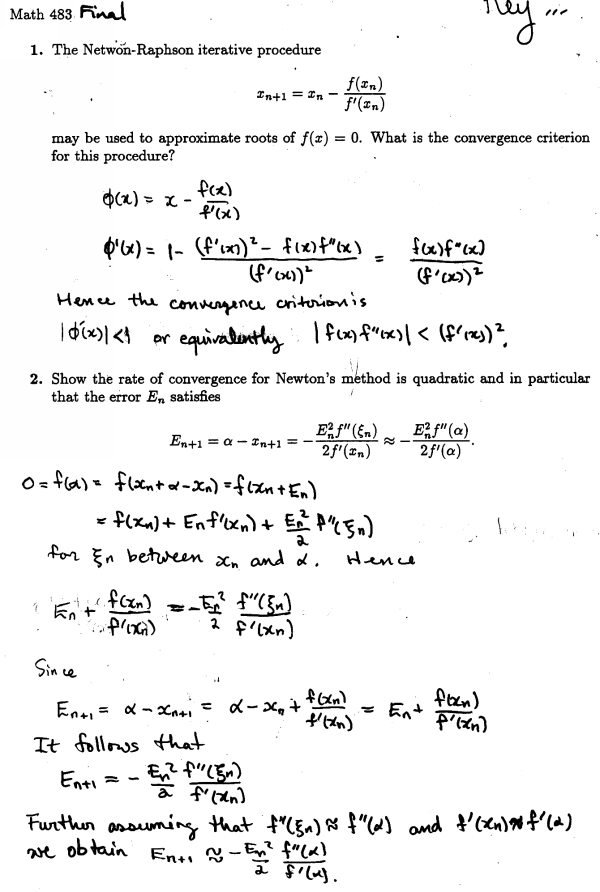 Math 483 Final
Key ...
1. The Netwon-Raphson iterative procedure
x_{n+1} = x_n - f(x_n)/f'(x_n)
may be used to approximate roots of f(x) = 0. What is the convergence criterion
for this procedure?
ϕ(x) = x - f(x)/f'(x)
ϕ'(x) = 1 - ((f'(x))² - f(x)f"(x))/(f'(x))² = f(x)f"(x)/(f'(x))²
Hence the convergence criterion is
|ϕ'(x)|<1 or equivalently |f(x)f"(x)| < (f'(x))².
2. Show the rate of convergence for Newton's method is quadratic and in particular
that the error E_n satisfies
E_{n+1} = α - x_{n+1} = - E_n² f''(ξ_n)/2f'(x_n) ≈ - E_n² f''(α)/2f'(α).
0 = f(α) = f(x_n + α - x_n) = f(x_n + E_n)
= f(x_n) + E_n f'(x_n) + E_n²/2 f"(ξ_n)
for ξ_n between x_n and α. Hence
E_n + f(x_n)/f'(x_n) = - E_n²/2 f''(ξ_n)/f'(x_n)
Since
E_{n+1} = α - x_{n+1} = α - x_n + f(x_n)/f'(x_n) = E_n + f(x_n)/f'(x_n)
It follows that
E_{n+1} = - E_n²/2 f''(ξ_n)/f'(x_n)
Further assuming that f"(ξ_n) ≈ f"(α) and f'(x_n) ≈ f'(α)
we obtain E_{n+1} ≈ - E_n²/2 f''(α)/f'(α).